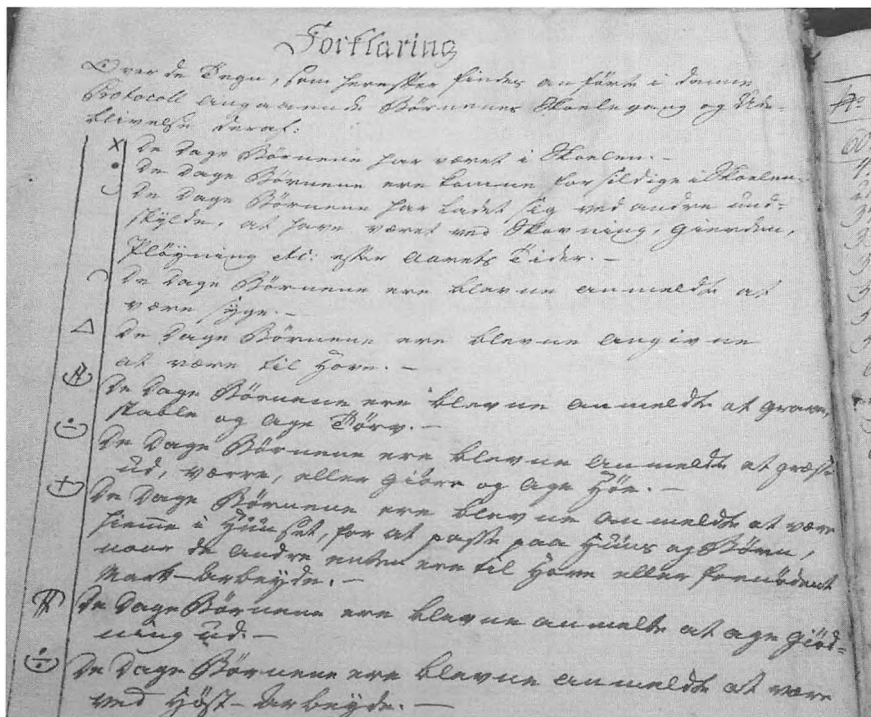 Forklaring
Over de Tegn, som herefter findes anförte i denne
Protocoll angaaende Börnenes Skoelegang og Ude-
blivelse deraf:
× De Dage Börnene har været i Skoelen. –
• De Dage Börnene ere komne for sildige i Skoelen.
De Dage Börnene har ladet sig ved andre und-
skylde, at have været ved Gierden,
Pløyning etc: efter Aarets Tider. –
De Dage Börnene ere blevne anmeldte at
være syge. –
△ De Dage Börnene ere blevne angivne
at være til Hove. –
De Dage Börnene ere blevne anmeldte at grave,
stable og age Törv. –
De Dage Börnene ere blevne anmeldte at
ud, eller giöre og age Höe. –
De Dage Börnene ere blevne anmeldte at være
hiemme i Huuset, for at passe paa Huus og Börn,
naar de andre enten ere til Hove eller fornödent
Mark-Arbeyde. –
De Dage Börnene ere blevne anmeldte at age Giöd-
ning ud. –
De Dage Börnene ere blevne anmeldte at være
ved Höst-Arbeyde. –